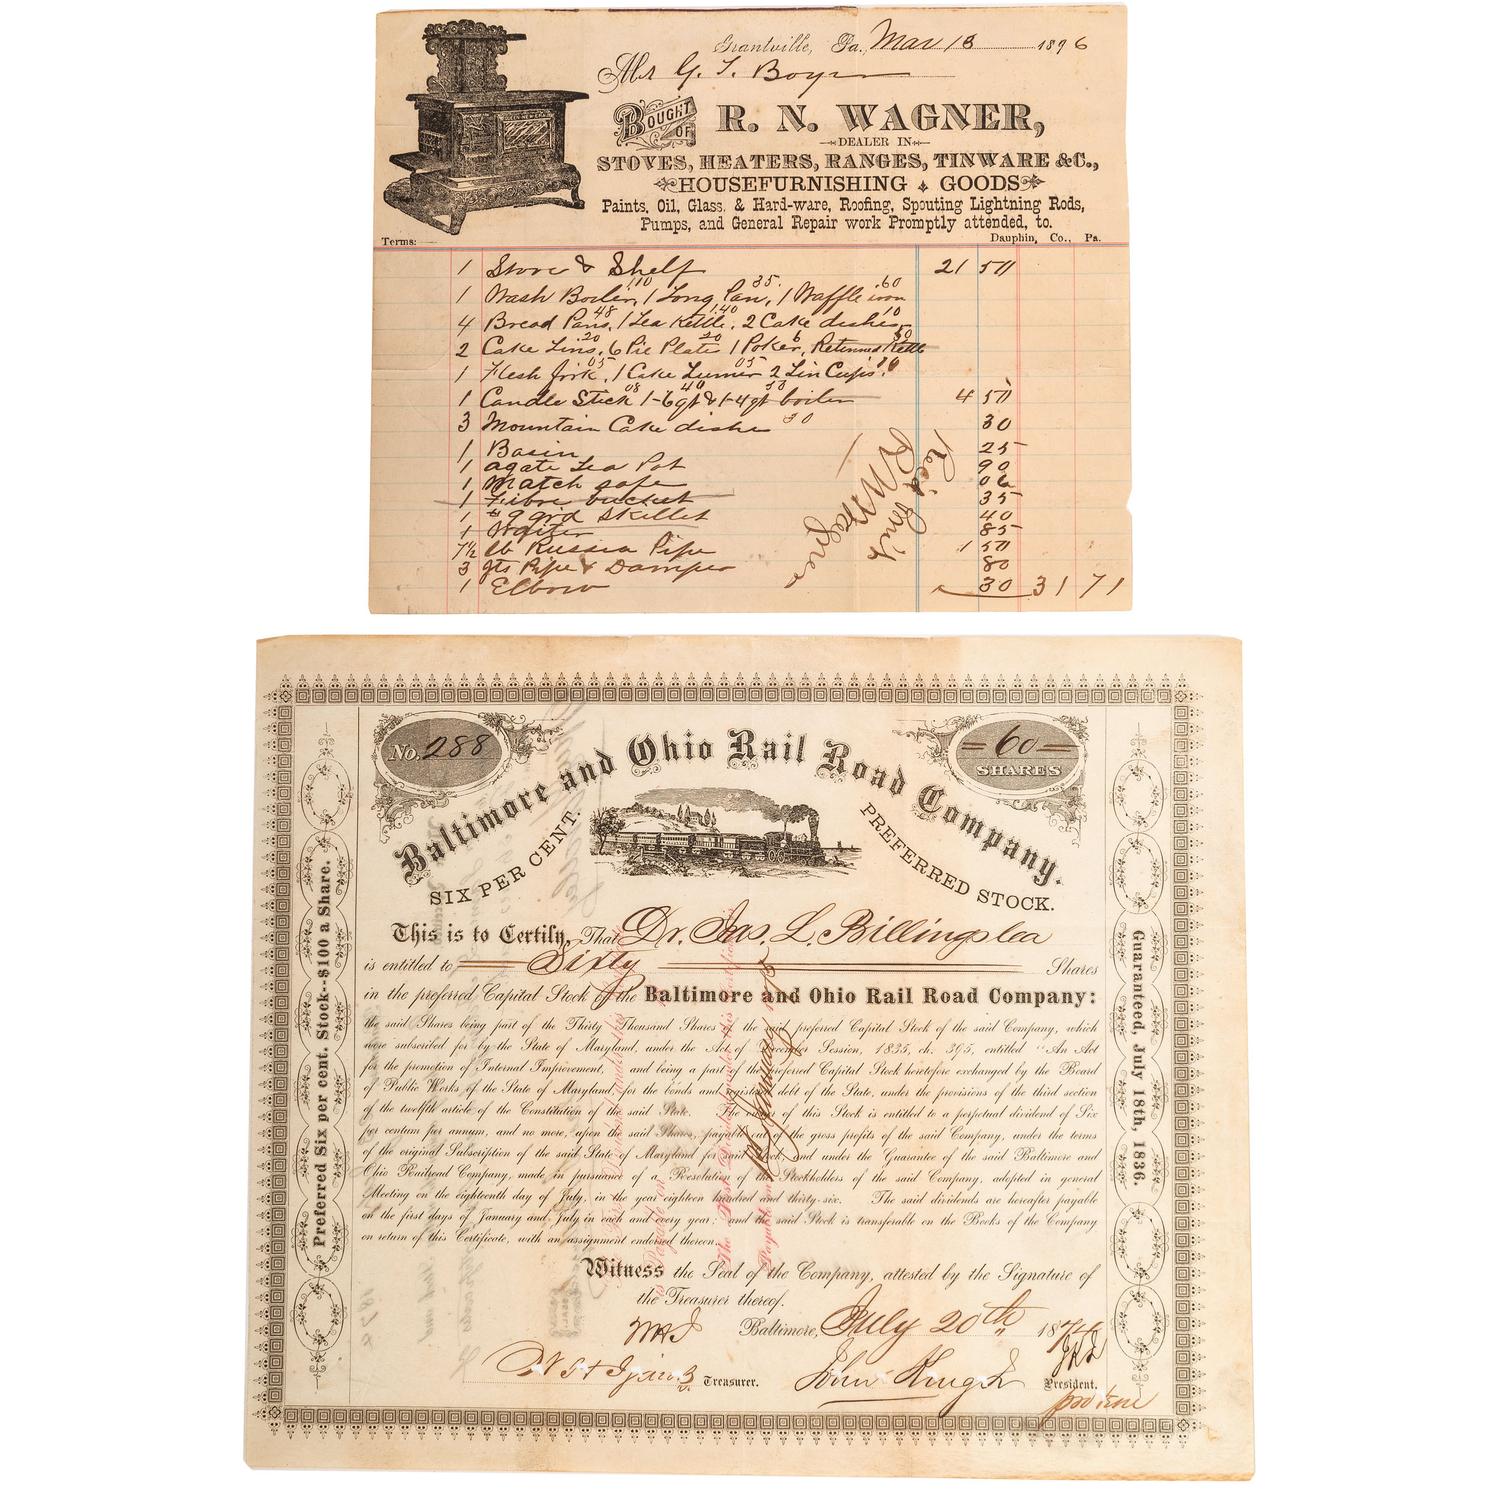 Grantville, Pa., Mar 18 1896
Mr G. T. Boyer
BOUGHT OF R. N. WAGNER,
DEALER IN
STOVES, HEATERS, RANGES, TINWARE &C.,
HOUSEFURNISHING GOODS
Paints, Oil, Glass, & Hard-ware, Roofing, Spouting Lightning Rods,
Pumps, and General Repair work Promptly attended, to.
Terms: Dauphin, Co., Pa.
1 Stove & Shelf 21 50
1 Wash Boiler, 1.10 1 Long Pan, 35 1 Waffle iron .60
4 Bread Pans, 48 1 Tea Kettle, 1.40 2 Cake dishes 10
2 Cake Tins, 20 6 Pie Plate 20 1 Poker, 6 Returned Kettle 50
1 Flesh fork, 05 1 Cake Turner 05 2 Tin Cups
1 Candle Stick 08 1-6 qt 40 & 1-4 qt boiler 4 50
3 Mountain Cake dishe 30 30
1 Basin 25
1 agate Tea Pot 90
1 Match safe 06
1 Fibre bucket 35
1 #9 grd Skillet 40
1 Waiter 85
7½ lb Russia Pipe 1 50
3 jts Pipe & Damper 80
1 Elbow 30 31 71
Rec'd Paymt
R N Wagner
No. 288
=60= SHARES
Baltimore and Ohio Rail Road Company.
SIX PER CENT. PREFERRED STOCK.
This is to Certify, That Dr. Jas. L. Billingslea
is entitled to Sixty Shares
in the preferred Capital Stock of the Baltimore and Ohio Rail Road Company:
the said Shares being part of the Thirty Thousand Shares of the said preferred Capital Stock of the said Company, which
were subscribed for by the State of Maryland, under the Act of December Session, 1835, ch. 395, entitled "An Act
for the promotion of Internal Improvement, and being a part of the preferred Capital Stock heretofore exchanged by the Board
of Public Works of the State of Maryland, for the bonds and registered debt of the State, under the provisions of the third section
of the twelfth article of the Constitution of the said State. The owner of this Stock is entitled to a perpetual dividend of Six
per centum per annum, and no more, upon the said Shares, payable out of the gross profits of the said Company, under the terms
of the original Subscription of the said State of Maryland for said Stock, and under the Guarantee of the said Baltimore and
Ohio Railroad Company, made in pursuance of a Resolution of the Stockholders of the said Company, adopted in general
Meeting on the eighteenth day of July, in the year eighteen hundred and thirty-six. The said dividends are hereafter payable
on the first days of January and July in each and every year; and the said Stock is transferable on the Books of the Company
on return of this Certificate, with an assignment endorsed thereon.
Witness the Seal of the Company, attested by the Signature of
the Treasurer thereof.
Baltimore, July 20th 1874
Treasurer. John King Jr President.
pro tem
Preferred Six per cent. Stock--$100 a Share.
Guaranteed, July 18th, 1836.
The First Dividend under this Certificate is
Payable on
1st January